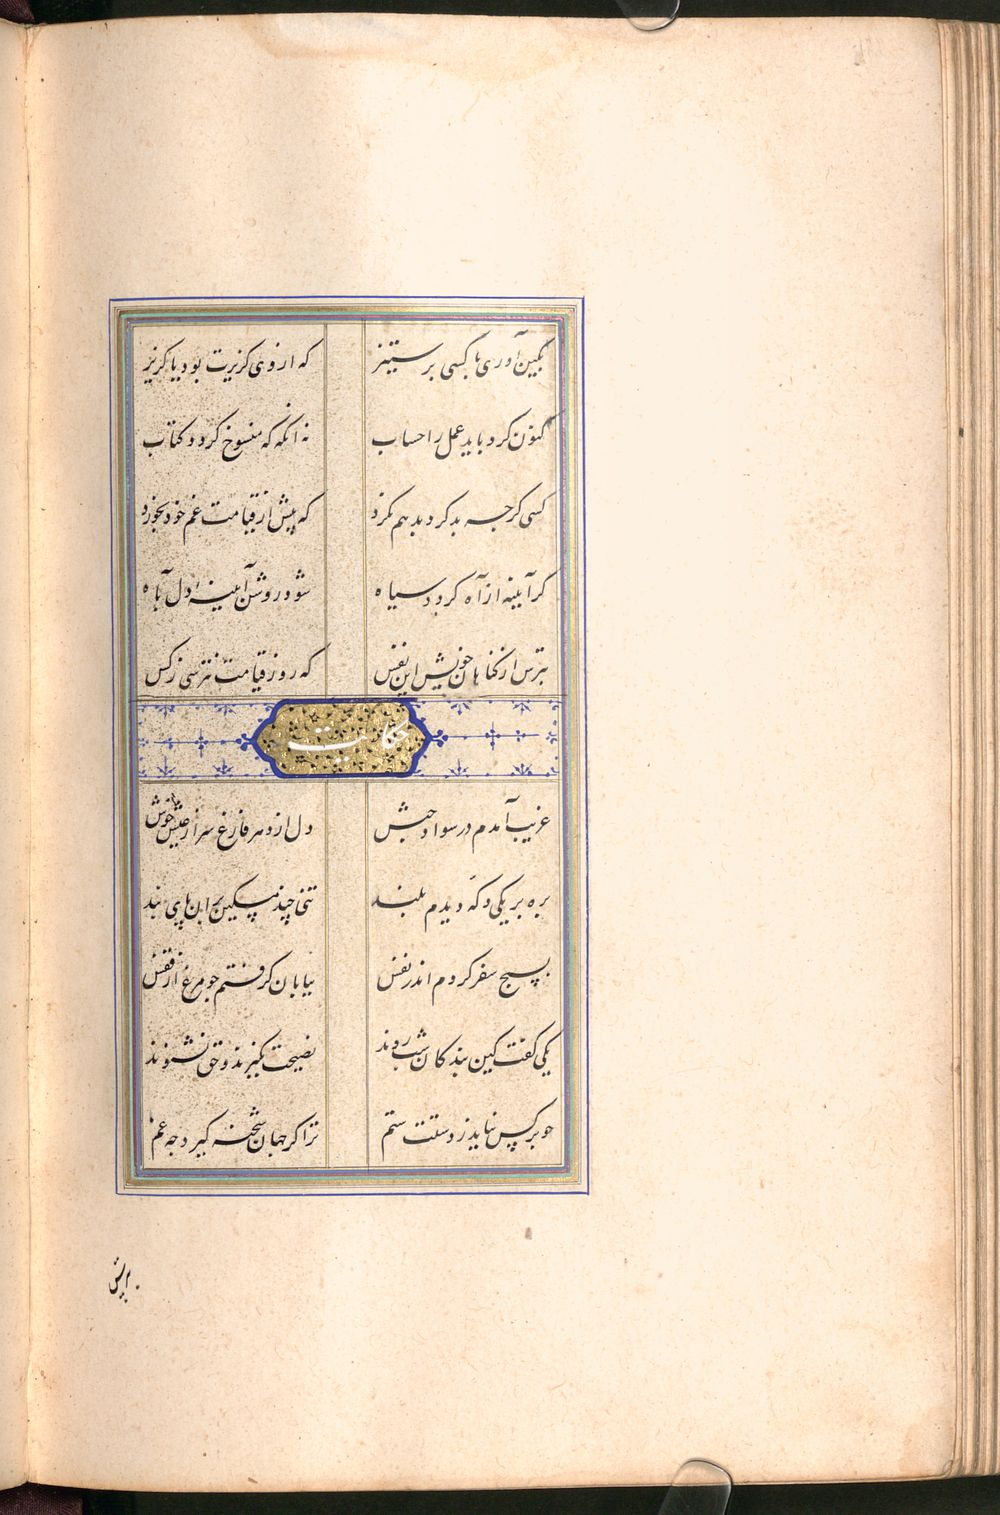 بکین آوری با کسی بر ستیز که از وی کزیرت بود یا کریز
کنون کرد باید عمل را حساب نه آنکه که منسوخ کردد کتاب
کسی کرچه بد کرد بد هم نکرد که پیش از قیامت غم خود بخورد
کر آیینه از آه کردد سیاه شود روشن آیینهٔ دل بآه
بترس از کناهان خویش این نفس که روز قیامت نترسی ز کس
حکایت
غریب آمدم در سواد حبش دل از دهر فارغ سر از عیش خوش
بره بر یکی دکه دیدم بلند تنی چند مسکین بران پای بند
بسیج سفر کردم اندر نفس بیابان کرفتم چو مرغ از قفس
یکی کفت کین بندکان شب روند نصیحت نکیرند و حق نشنوند
چو بر کس نیاید ز دستت ستم ترا کر جهان شحنه کیرد چه غم